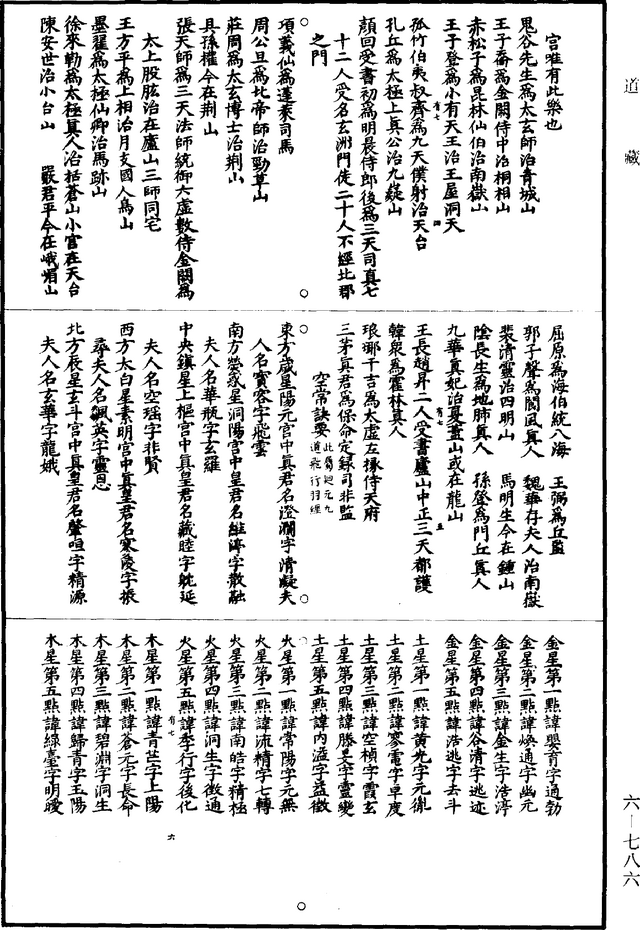 道藏
宫唯有此樂也
鬼谷先生爲太玄師治青城山
王子喬爲金闕侍中治桐栢山
赤松子爲昆林仙伯治南嶽山
王子登爲小有天王治王屋洞天
有七 四
孤竹伯夷叔齊爲九天僕射治天台
孔丘爲太極上真公治九嶷山
顔回受書初爲明晨侍郎後爲三天司真七
十二人受名玄洲門徒三十人不經北酆
之門
項羲仙爲蓬萊司馬
周公旦爲北帝師治勁草山
莊周爲太玄博士治荆山
具孫權今在荆山
張天師爲三天法師統御六虛數侍金闕爲
太上股肱治在廬山三師同宅
王方平爲上相治月支國人鳥山
墨翟爲太極仙卿治馬跡山
徐來勒爲太極真人治括蒼山小宮在天台
陳安世治小台山 嚴君平今在峨嵋山
屈原爲海伯統八海 王弼爲丘監
郭子聲爲閬風真人 魏華存夫人治南嶽
裴清靈治四明山 馬明生今在鍾山
陰長生爲地肺真人 孫登爲門丘真人
九華真妃治夏蓋山或在龍山
有七 五
王長趙昇二人受書廬山中正三天都護
韓衆爲霍林真人
琅琊干吉爲太虛左掾侍天府
三茅真君爲保命定録司非監
空常訣要 此屬廻元九道飛行羽經
東方歲星陽元宮中真君名澄瀾字清凝夫
人名寶容字飛雲
南方熒惑星洞陽宮中皇君名維渟字散融
夫人名華瓶字玄羅
中央鎮星上樞宮中真皇君名藏睦字躭延
夫人名空瑶字非賢
西方太白星素明宮中真皇君名寒凌字振
尋夫人名飆英字靈恩
北方辰星玄斗宮中真皇君名肇恒字精源
夫人名玄華字龍娥
金星第一點諱嬰育字通勃
金星第二點諱煥通字幽元
金星第三點諱金生字浩亭
金星第四點諱谷清字逃迹
金星第五點諱浩逃字去斗
土星第一點諱黄光字元胤
土星第二點諱寥電字卓度
土星第三點諱空楨字霞玄
土星第四點諱勝旻字靈變
土星第五點諱内溢字益徵
火星第一點諱常陽字元無
火星第二點諱流精字七轉
火星第三點諱南皓字精極
火星第四點諱洞生字微通
火星第五點諱李行字後化
有七 六
木星第一點諱青芒字上陽
木星第二點諱蒼元字長命
木星第三點諱碧淵字洞生
木星第四點諱歸青字玉陽
木星第五點諱緑臺字明曖
六—七八六